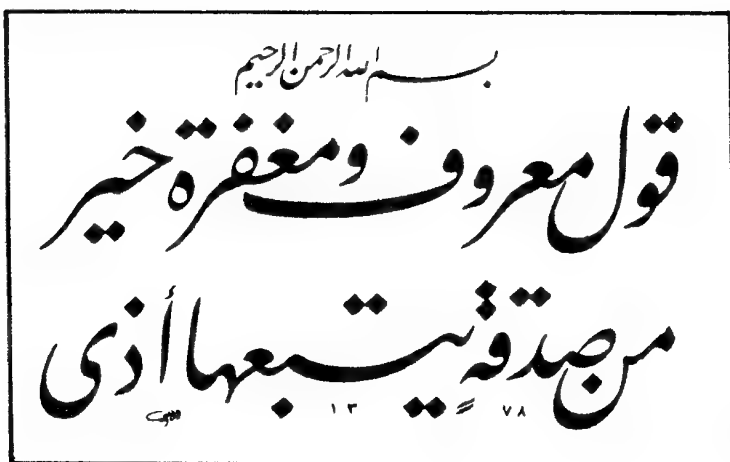 بسم الله الرحمن الرحيم
قول معروف ومغفرة خير
من صدقةٍ يتبعها أذى
١٣ ٧٨